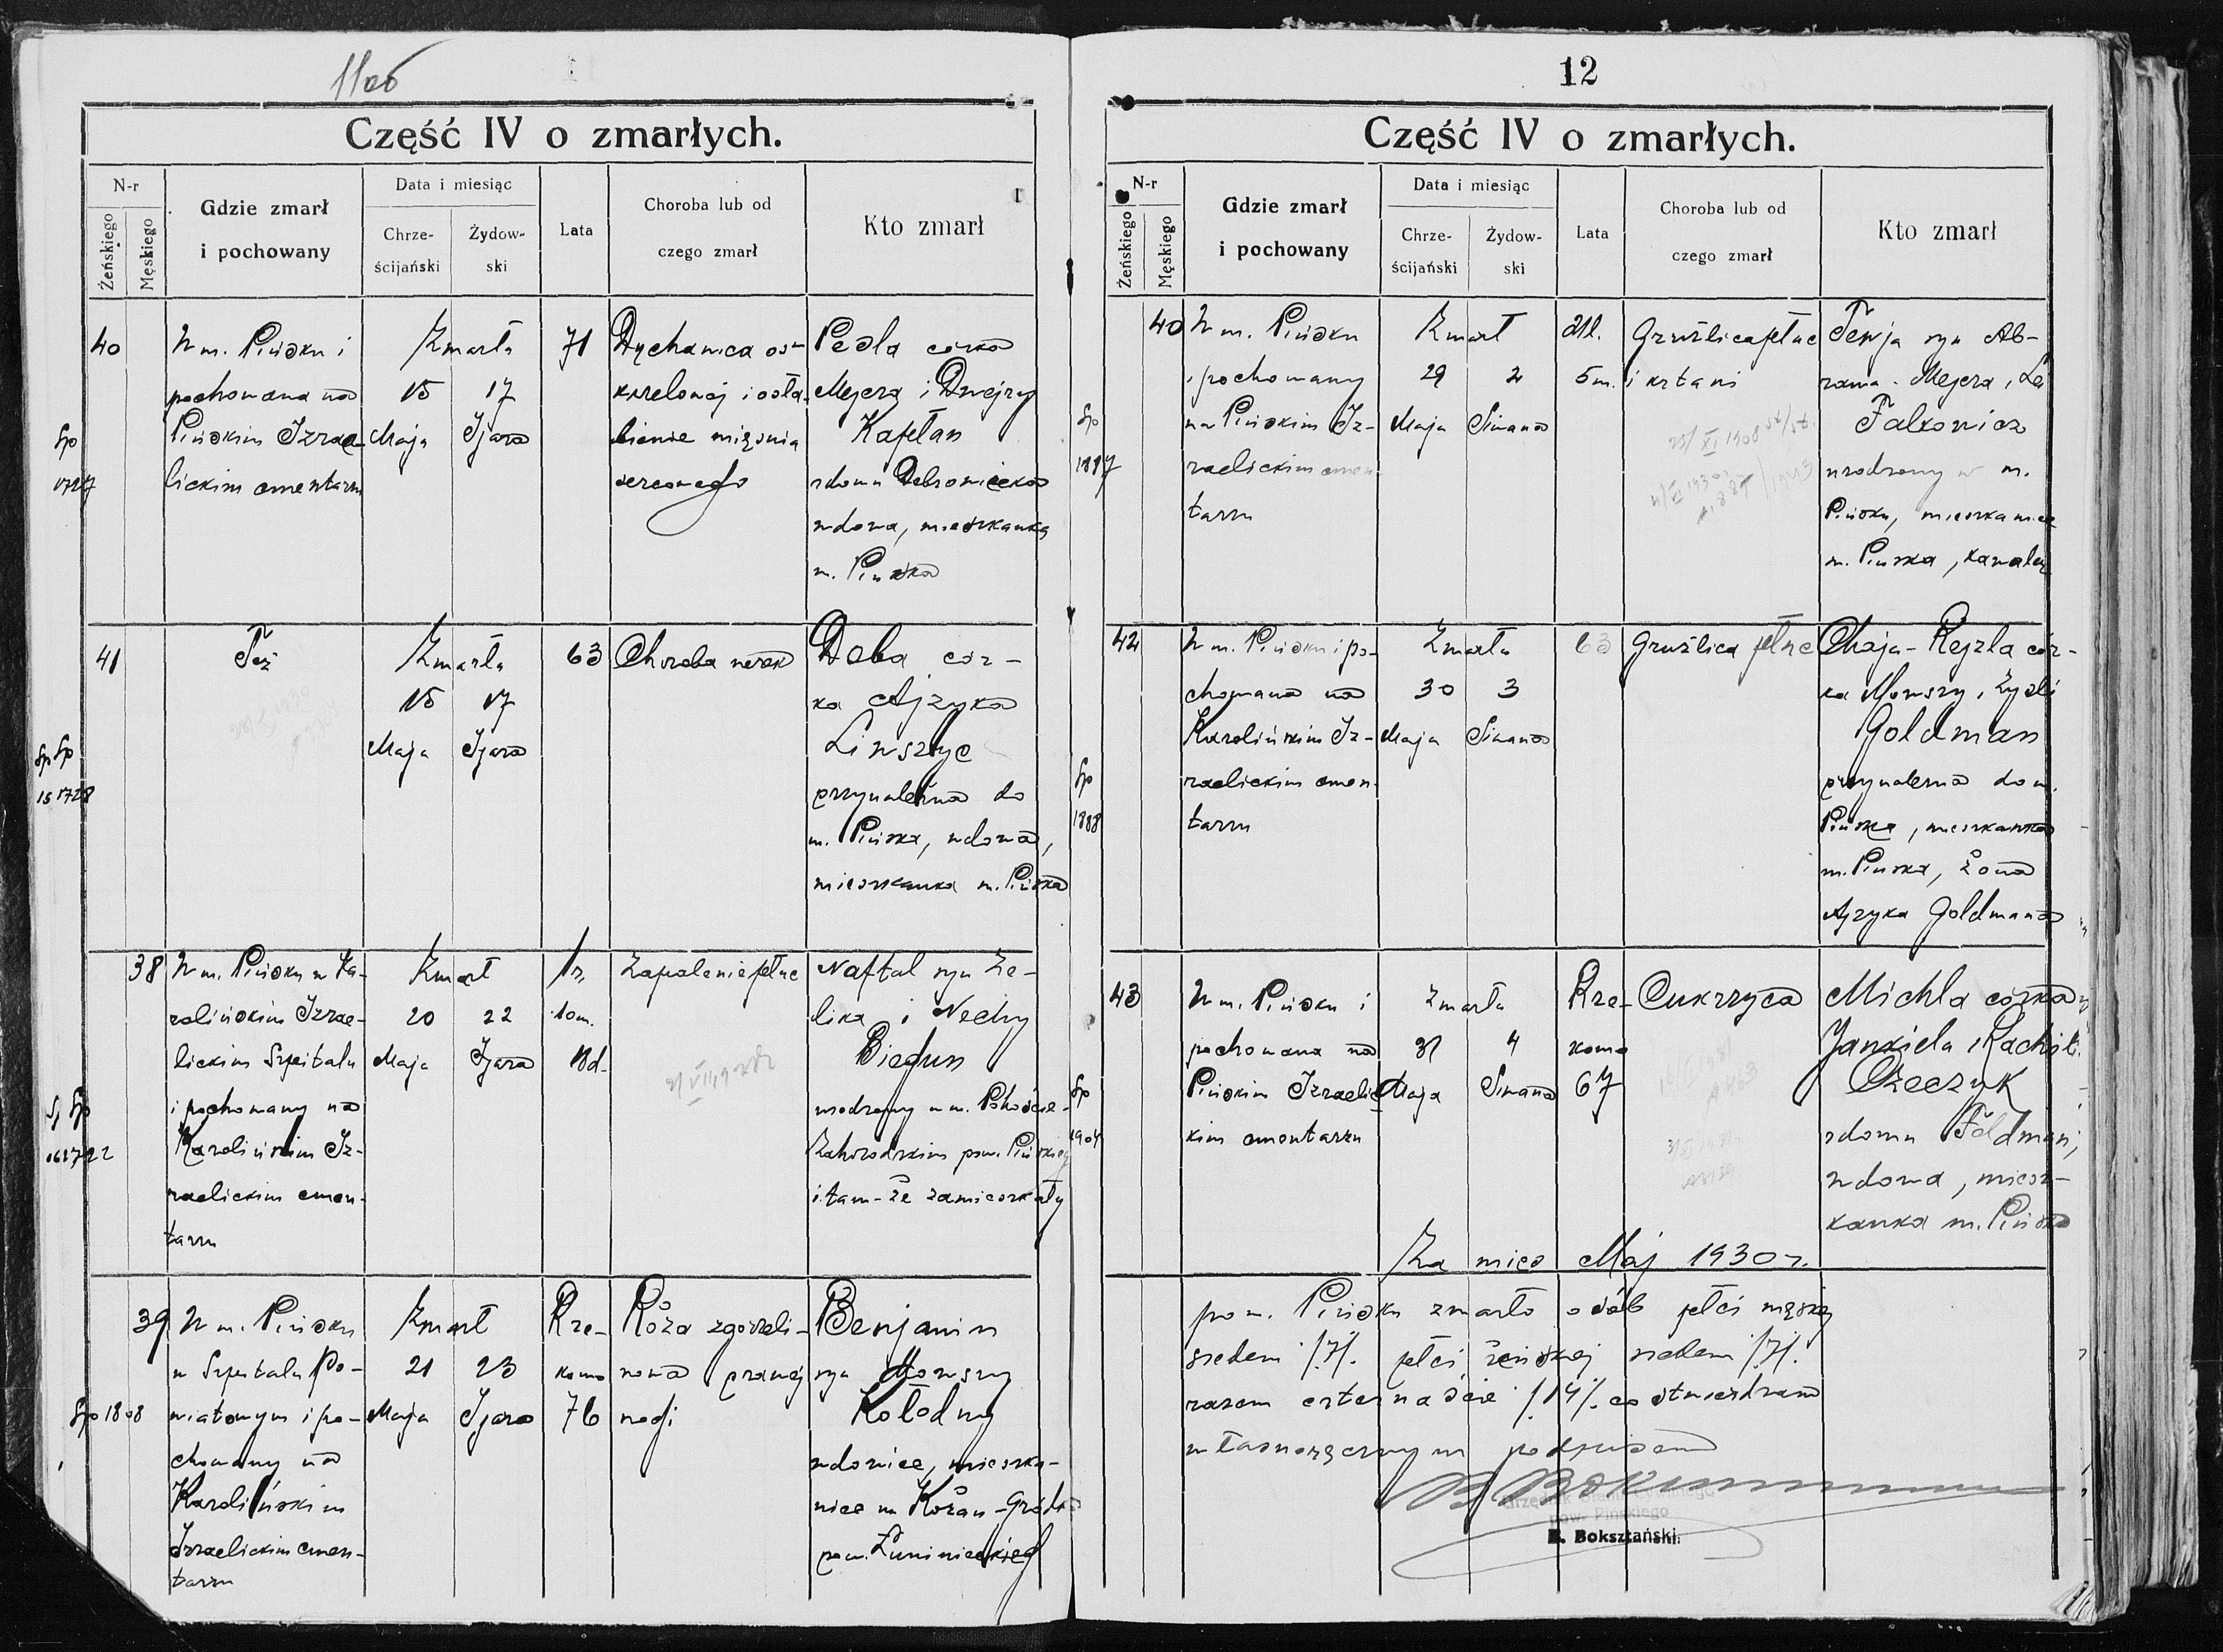 Część IV o zmarłych.
N-r
Żeńskiego
Męskiego
Gdzie zmarł
i pochowany
Data i miesiąc
Chrze-
ścijański
Żydow-
ski
Lata
Choroba lub od
czego zmarł
Kto zmarł
40
W m. Pińsku i
pochowana na
Pińskim Izrae-
lickim cmentarzu
Zmarła
15 17
Maja Ijara
71
Dychawica os-
krzelowaj i osła-
bienie mięśnia
sercowego
Pesla córka
Mejera i Dwejry
Kapłan
zdomu Dobrowicka
wdowa, mieszkanka
m. Pińska
Sp
1727
41
Też
Zmarła
15 17
Maja Ijara
63
Choroba nerek
Doba cór-
ka Ajzyka
Linszyc
przynależna do
m. Pińska, wdowa,
mieszkanka m. Pińska
Sp Sp
15 1728
38
W m. Pińsku w Ka-
rolińskim Izrae-
lickim Szpitalu
i pochowany na
Karolińskim Iz-
raelickim cmen-
tarzu
Zmarł
20 22
Maja Ijara
1 r.
10 m.
18 d.
Zapalenie płuc
Naftal syn Ze-
lika i Nechy
Biegun
urodzony w m. Pohoście-
Zahorodzkim pow. Pińskiego
i tam-że zamieszkały
Sp
39
W m. Pińsku
w Szpitalu Po-
wiatowym i po-
chowany na
Karolińskim
Izraelickim cmen-
tarzu
Zmarł
21 23
Maja Ijara
Rze-
komo
76
Róża zgorzeli-
nowa prawej
nogi
Benjamin
syn Mowszy
Kołodny
wdowiec, mieszka-
niec m. Kożan-Gródka
pow. Łuninieckiego
Sp 1808
12
Część IV o zmarłych.
N-r
Żeńskiego
Męskiego
Gdzie zmarł
i pochowany
Data i miesiąc
Chrze-
ścijański
Żydow-
ski
Lata
Choroba lub od
czego zmarł
Kto zmarł
40
W m. Pińsku
i pochowany
na Pińskim Iz-
raelickim cmen-
tarzu
Zmarł
29 2
Maja Siwana
21 l.
5 m.
Gruźlica płuc
i krtani
Tewja syn Ab-
rama-Mejera i
Falkowicz
urodzony w m.
Pińsku, mieszkaniec
m. Pińska, kawaler
Sp
1887
42
W m. Pińsku i po-
chowana na
Karolińskim Iz-
raelickim cmen-
tarzu
Zmarła
30 3
Maja Siwana
63
Gruźlica płuc
Chaja-Rejzla cór-
ka Mowszy i Zysli
Goldman
przynależna do m.
Pińska, mieszkanka
m. Pińska, żona
Ajzyka Goldmana
Sp
1888
43
W m. Pińsku i
pochowana na
Pińskim Izraelic-
kim cmentarzu
Zmarła
31 4
Maja Siwana
Rze-
komo
67
Cukrzyca
Michla córka
Jankiela i Rachili
Ożeczyk
zdomu Feldman,
wdowa, miesz-
kanka m. Pińska
Sp
1904
Za mies Maj 1930 r.
po m. Pińsku zmarło osób płci męskiej
siedem /7/. płci żeńskiej siedem /7/.
razem czternaście /14/. co stwierdzam
własnoręcznym podpisem
Urzędnik Stanu Cywilnego
pow. Pińskiego
B.Boksztański.